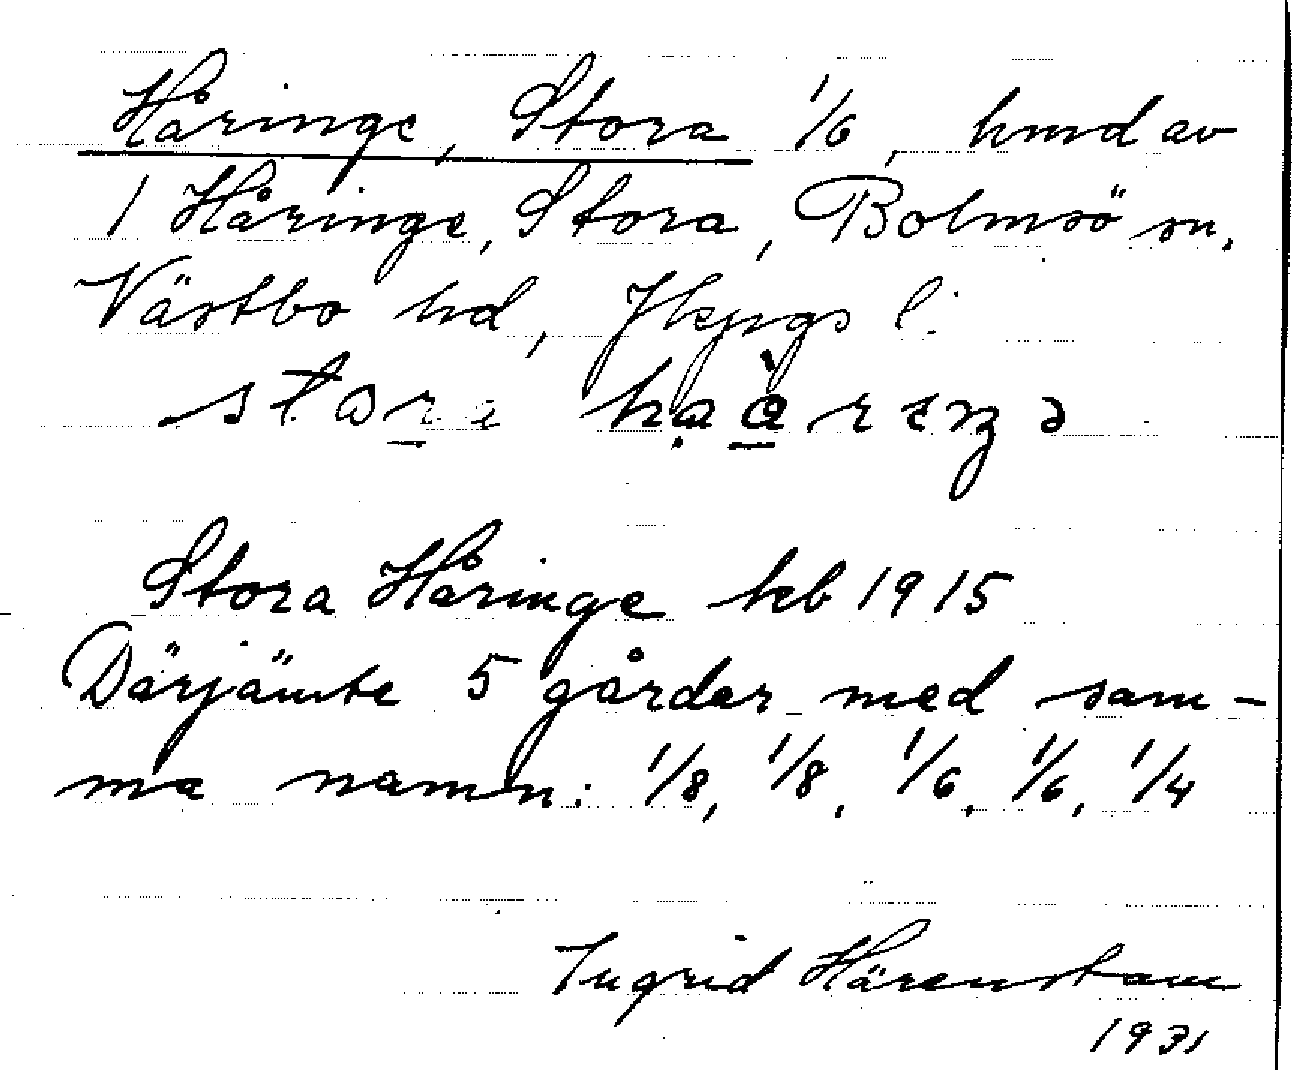 Håringe, Stora 1/6, hmd av
1 Håringe, Stora, Bolmsö sn,
Västbo hd, Jkpgs l.
Stora Håringe kb 1915
Därjämte 5 gårdar med sam-
ma namn: 1/8, 1/8, 1/6, 1/6, 1/4
Ingrid Härenstam
1931